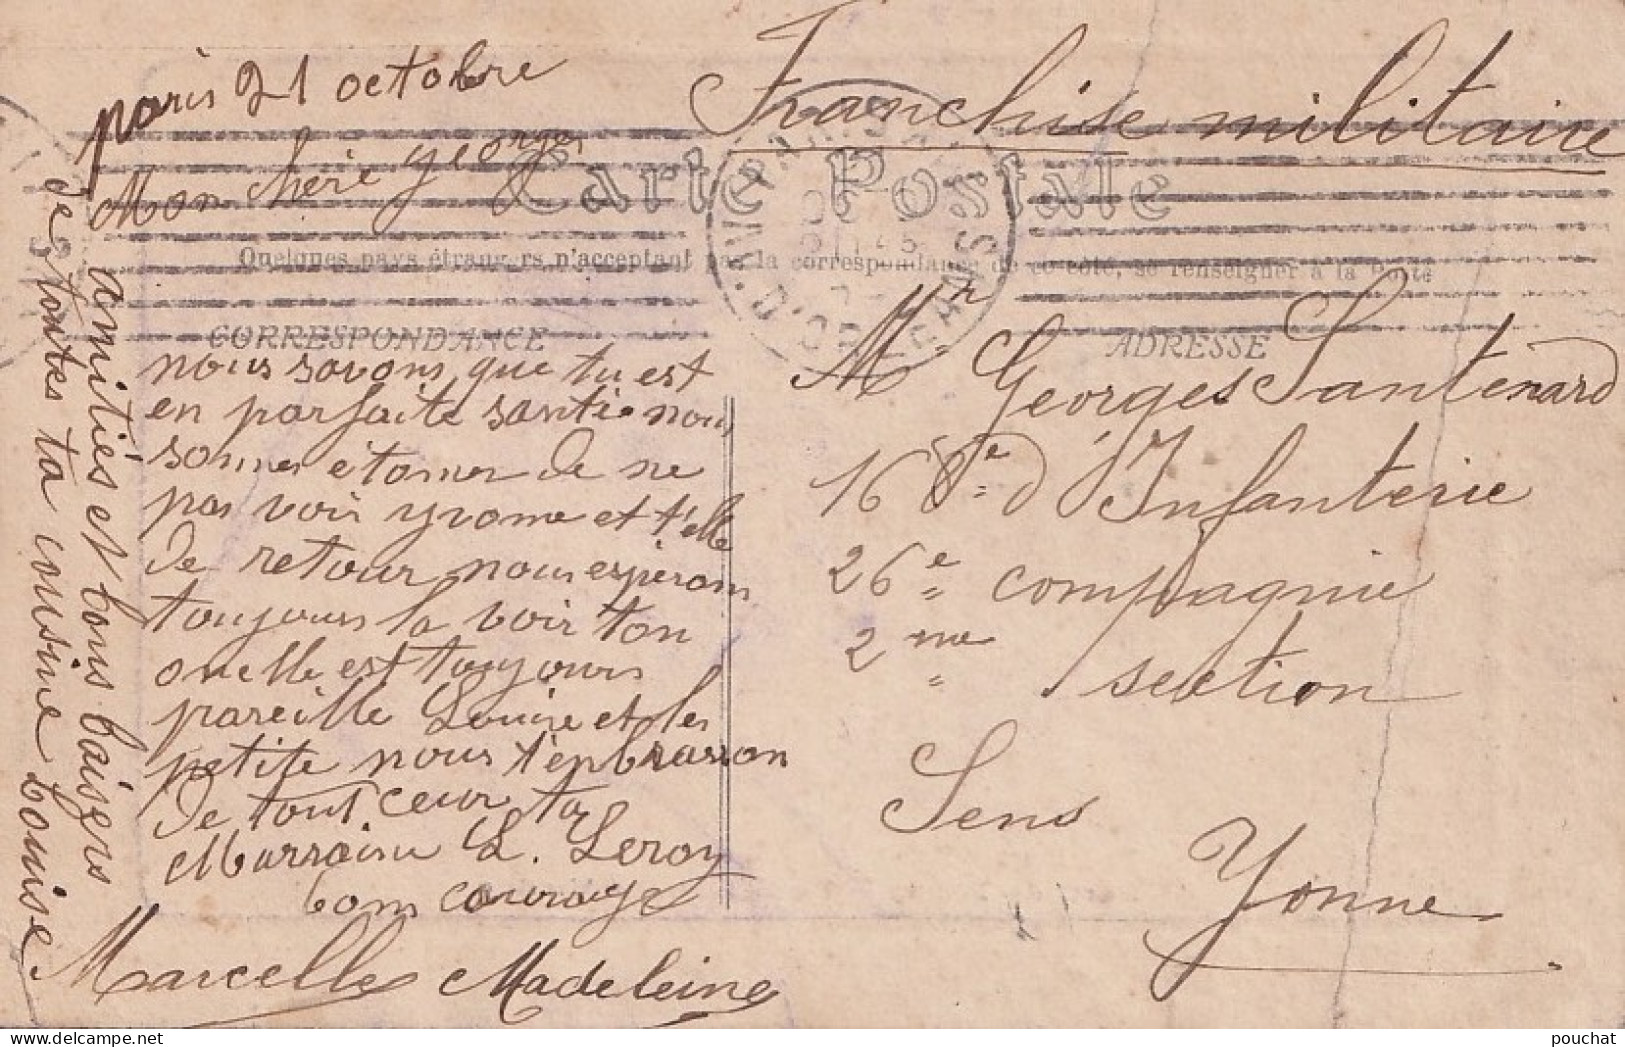 paris 21 octobre
Mon chère georges
Franchise militaire
Carte Postale
Quelques pays étrangers n'acceptant pas la correspondance de ce côté, se renseigner à la Poste
CORRESPONDANCE
nous savons que tu est
en parfaite santé nous
sommes étonner de ne
pas voir yvonne et t'elle
de retour nous espérons
toujours la voir ton
oncle est toujours
pareille Louise et les
petite nous t'enbrasson
de tout cœur ta
Marraine L. Leroy
bons courage
Marcelle Madeleine
amitiés et bons baisers
de toutes ta cousine Louise
ADRESSE
Mr Georges Santenard
168e d'Infanterie
26e compagnie
2me section
Sens
Yonne
AV. D'ORLEANS
pouchat